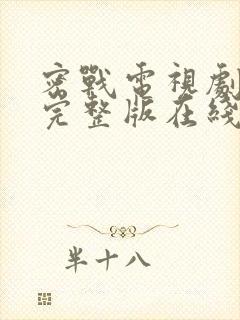 密戰電視劇
完整版在綫
半十八